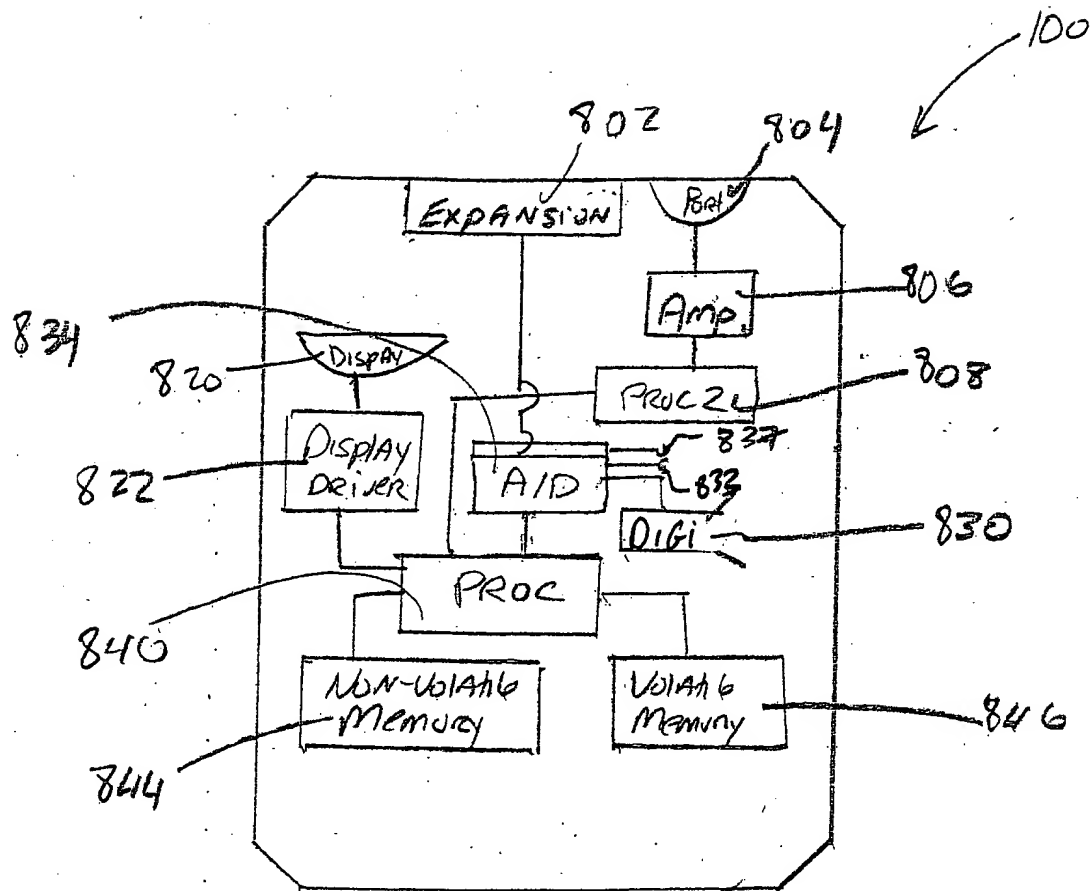 100
802
804
EXPANSION
Port
Amp.
806
834
820
Display
808
837
Display
Driver
A/D
832
822
DiGi
830
PROC
840
Non-Volatile
Memory
Volatile
Memory
846
844